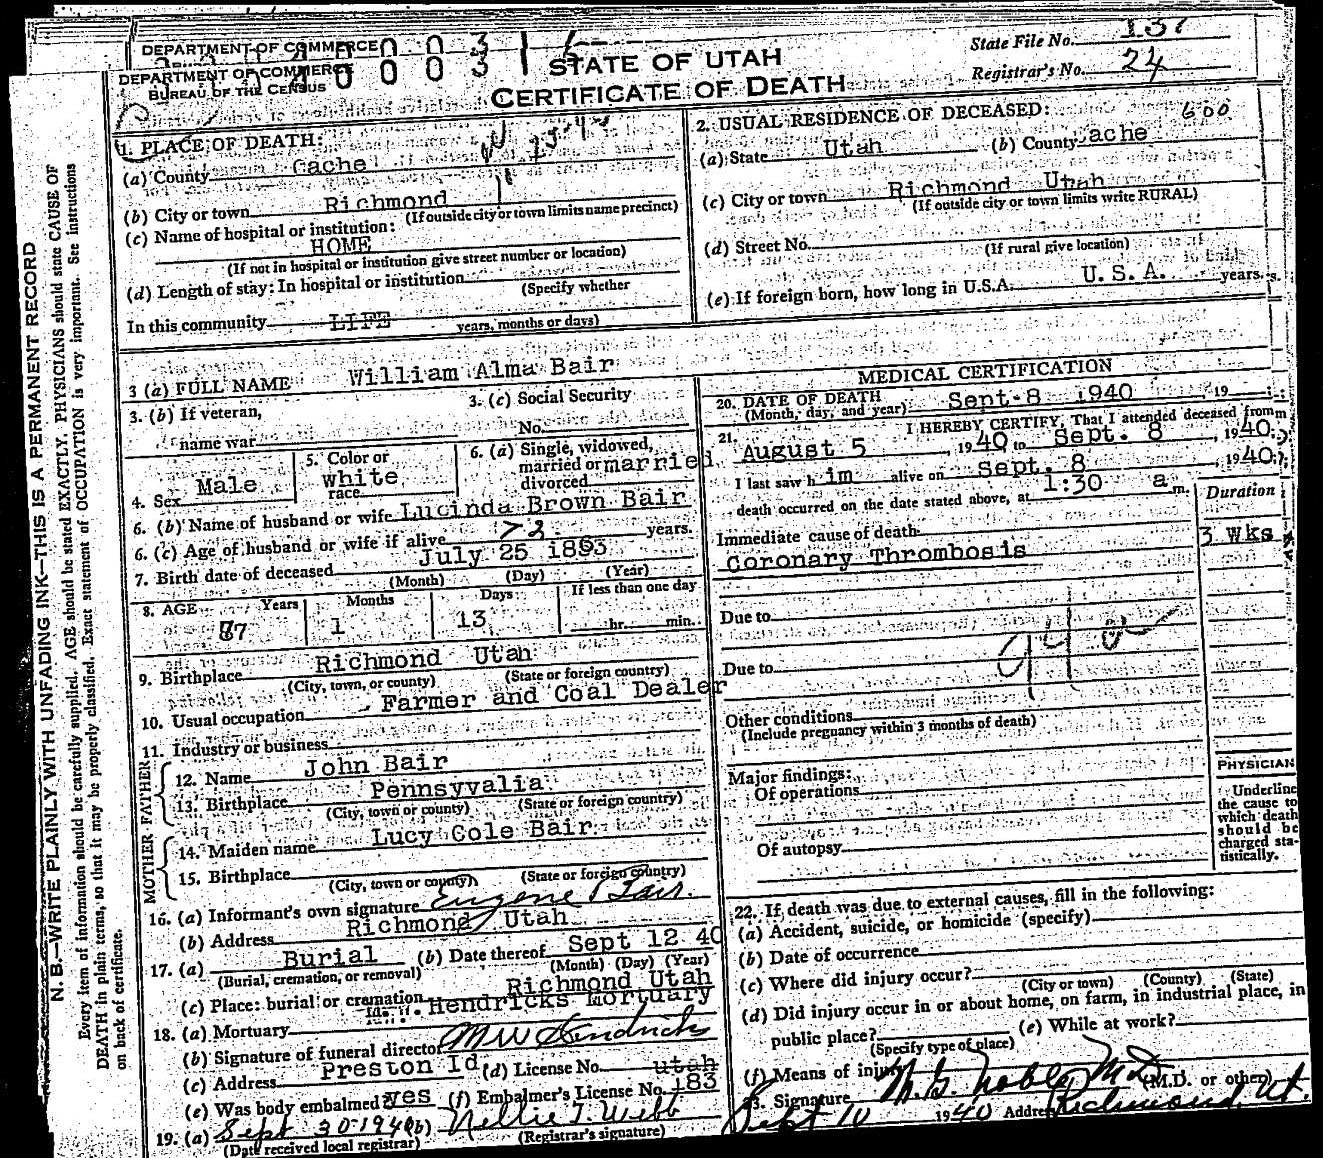 DEPARTMENT OF COMMERCE
DEPARTMENT OF COMMERCE
BUREAU OF THE CENSUS
0 0 0 3
STATE OF UTAH
CERTIFICATE OF DEATH
State File No. 137
Registrar's No. 24
N. B.—WRITE PLAINLY WITH UNFADING INK—THIS IS A PERMANENT RECORD
Every item of information should be carefully supplied. AGE should be stated EXACTLY. PHYSICIANS should state CAUSE OF
DEATH in plain terms, so that it may be properly classified. Exact statement of OCCUPATION is very important. See instructions
on back of certificate.
1. PLACE OF DEATH:
(a) County Cache
(b) City or town Richmond
(If outside city or town limits name precinct)
(c) Name of hospital or institution:
HOME
(If not in hospital or institution give street number or location)
(d) Length of stay: In hospital or institution
(Specify whether
In this community LIFE years, months or days)
2. USUAL RESIDENCE OF DECEASED: 600
(a) State Utah (b) County ache
(c) City or town Richmond Utah
(If outside city or town limits write RURAL)
(d) Street No.
(If rural give location)
(e) If foreign born, how long in U.S.A. U.S.A. years.
3 (a) FULL NAME William Alma Bair
3. (b) If veteran,
name war
3. (c) Social Security
No.
4. Sex Male
5. Color or
race white
6. (a) Single, widowed,
married or married
divorced
6. (b) Name of husband or wife Lucinda Brown Bair
6. (c) Age of husband or wife if alive 72 years.
7. Birth date of deceased July 25 1853
(Month) (Day) (Year)
8. AGE Years Months Days If less than one day
87 1 13 hr. min.
9. Birthplace Richmond Utah
(City, town, or county) (State or foreign country)
10. Usual occupation Farmer and Coal Dealer
11. Industry or business
FATHER
12. Name John Bair
13. Birthplace Pennsyvalia
(City, town or county) (State or foreign country)
MOTHER
14. Maiden name Lucy Cole Bair
15. Birthplace
(City, town or county) (State or foreign country)
16. (a) Informant's own signature Eugene Bair.
(b) Address Richmond Utah
17. (a) Burial (b) Date thereof Sept 12 40
(Burial, cremation, or removal) (Month) (Day) (Year)
(c) Place: burial or cremation Richmond Utah
18. (a) Mortuary Hendricks Mortuary
(b) Signature of funeral director M W Hendricks
(c) Address Preston Id (d) License No. utah
(e) Was body embalmed? yes (f) Embalmer's License No. 183
19. (a) Sept 30-1940 (b) Nellie T. Webb
(Date received local registrar) (Registrar's signature)
MEDICAL CERTIFICATION
20. DATE OF DEATH
(Month, day, and year) Sept-8 1940, 19
21. I HEREBY CERTIFY, That I attended deceased from
August 5, 1940 to Sept. 8, 1940;
I last saw h im alive on Sept. 8, 1940;
death occurred on the date stated above, at 1:30 a m.
Duration
Immediate cause of death
Coronary Thrombosis 3 Wks
Due to
94a
Due to
Other conditions
(Include pregnancy within 3 months of death)
Major findings:
Of operations
Of autopsy
PHYSICIAN
Underline
the cause to
which death
should be
charged sta-
tistically.
22. If death was due to external causes, fill in the following:
(a) Accident, suicide, or homicide (specify)
(b) Date of occurrence
(c) Where did injury occur?
(City or town) (County) (State)
(d) Did injury occur in or about home, on farm, in industrial place, in
public place? (e) While at work?
(Specify type of place)
(f) Means of injury
3. Signature M. G. Noble MD (M.D. or other)
Sept 10 1940 Address Richmond, Ut.